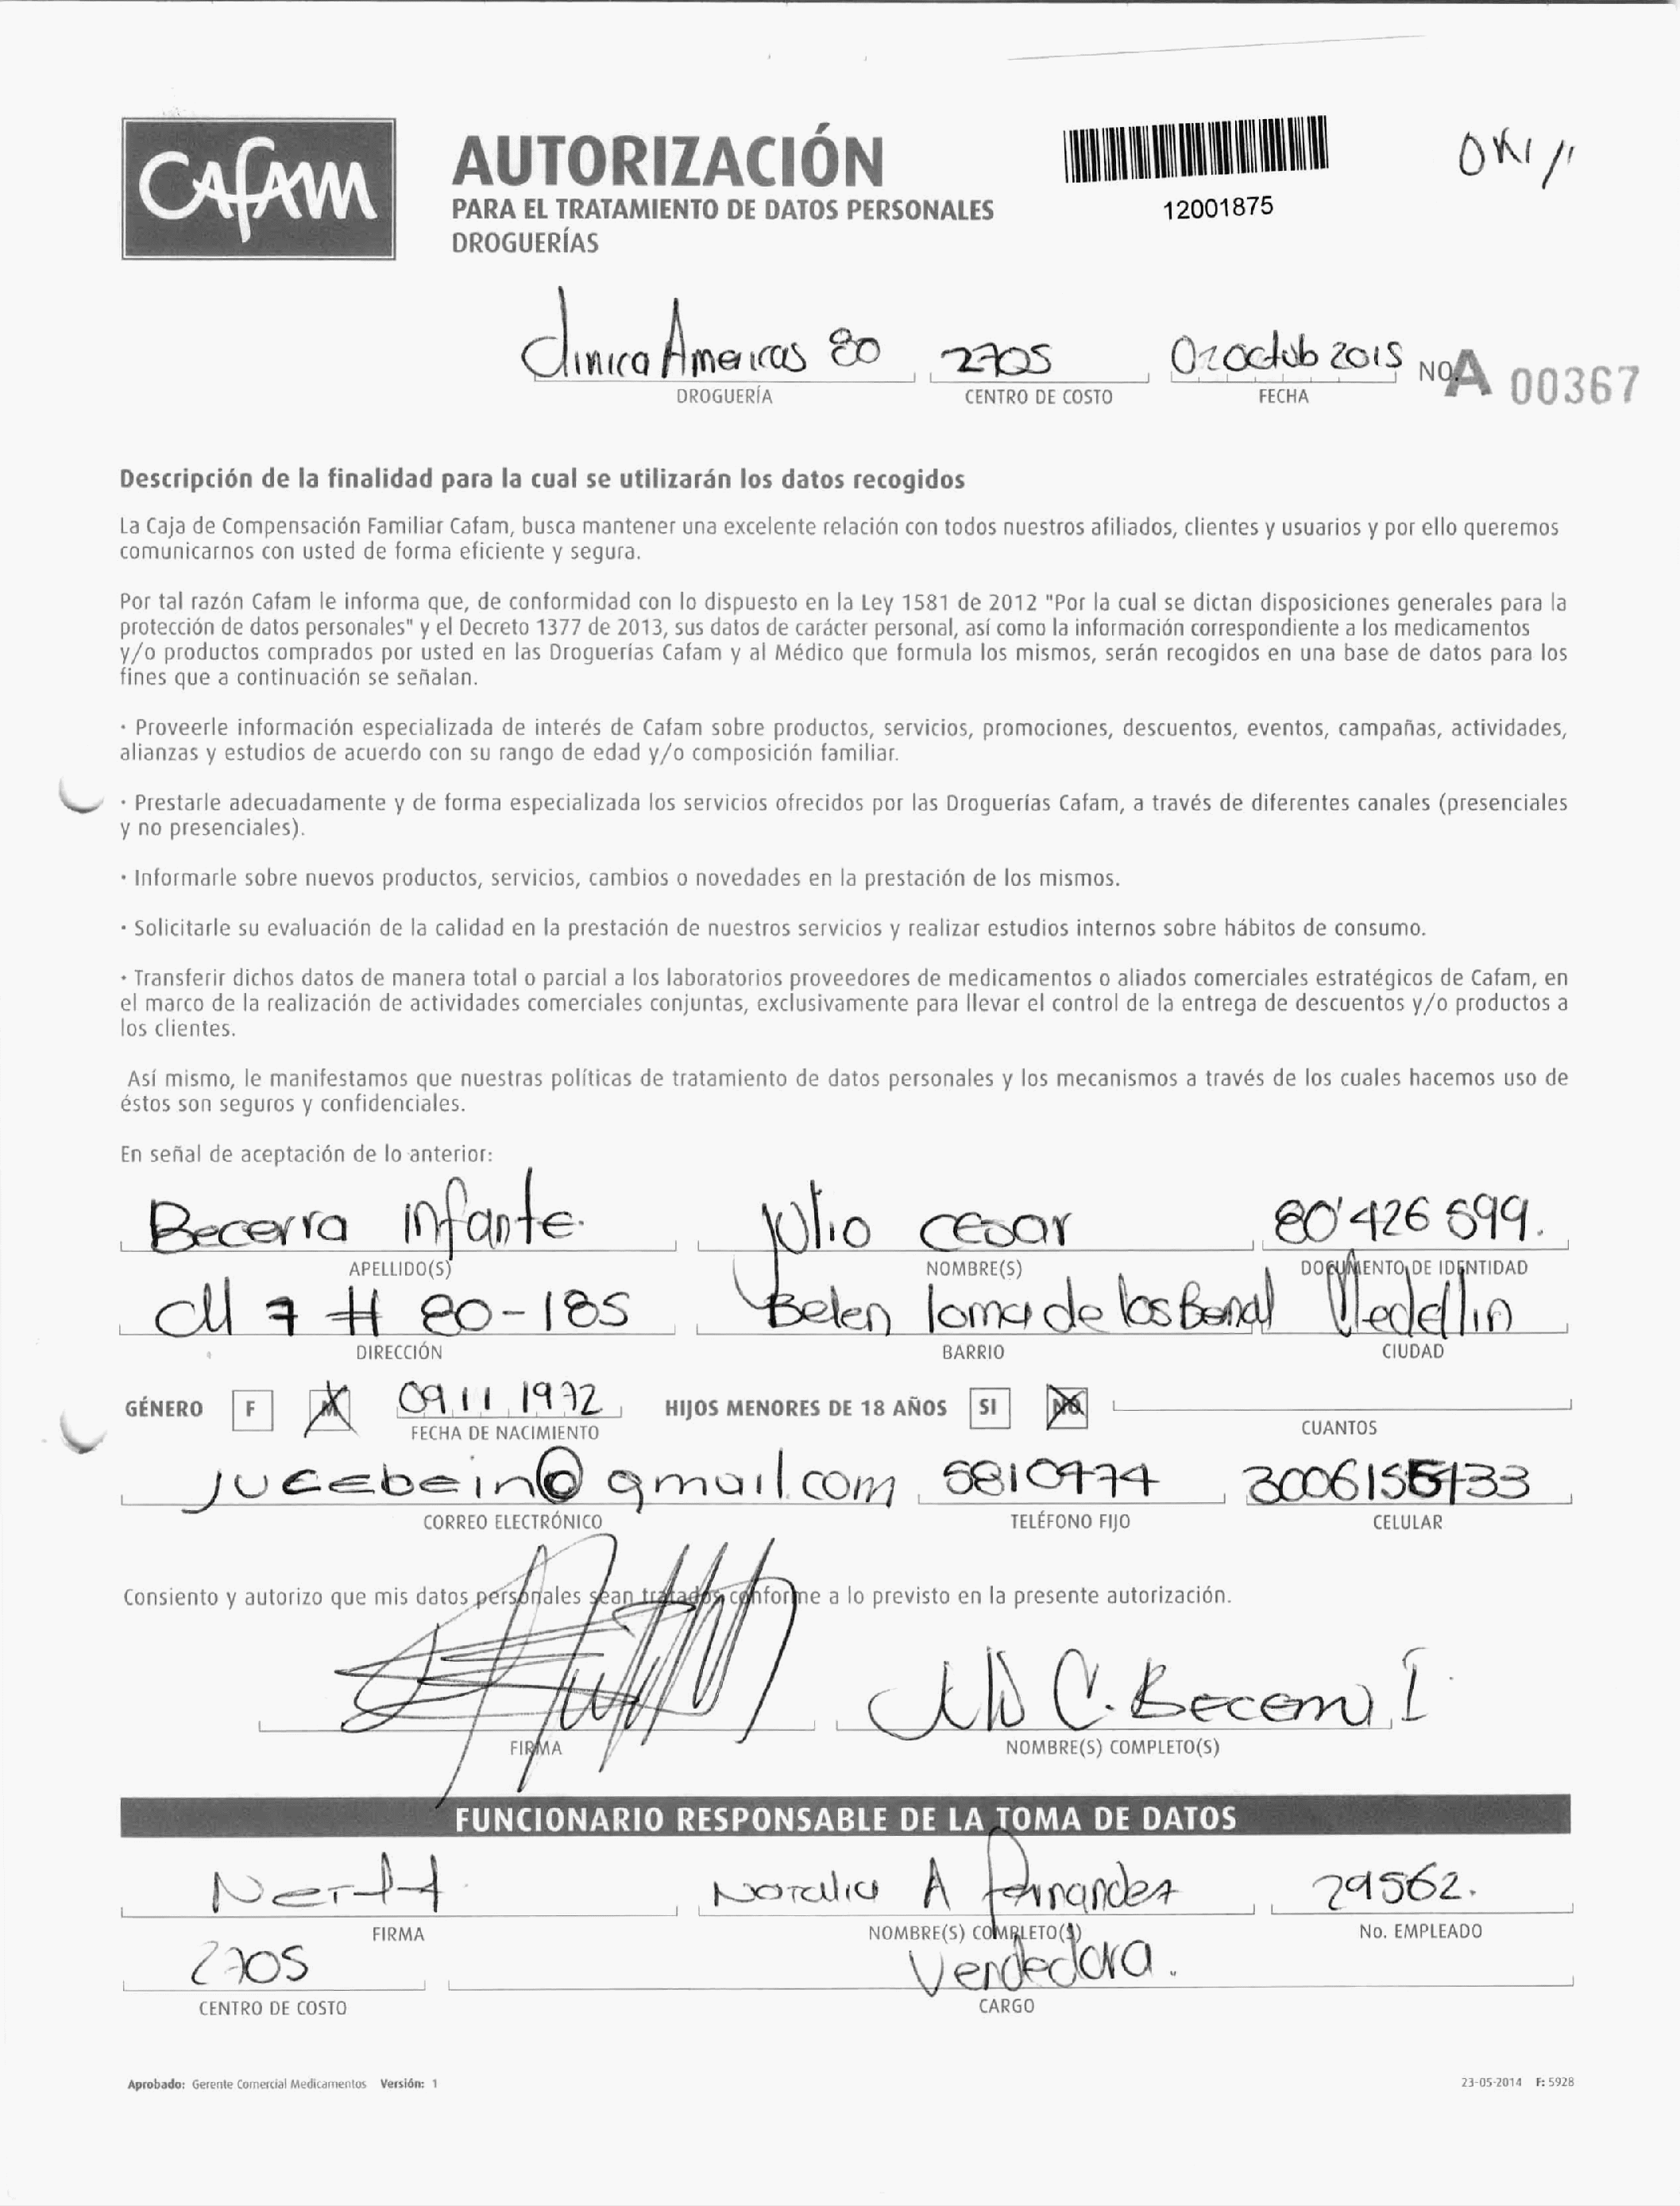 CAFAM
AUTORIZACIÓN
PARA EL TRATAMIENTO DE DATOS PERSONALES
DROGUERÍAS
12001875
Clinica Americas 80 2705 02 octub 2015 NO. A 00367
DROGUERÍA CENTRO DE COSTO FECHA
Descripción de la finalidad para la cual se utilizarán los datos recogidos
La Caja de Compensación Familiar Cafam, busca mantener una excelente relación con todos nuestros afiliados, clientes y usuarios y por ello queremos
comunicarnos con usted de forma eficiente y segura.
Por tal razón Cafam le informa que, de conformidad con lo dispuesto en la Ley 1581 de 2012 "Por la cual se dictan disposiciones generales para la
protección de datos personales" y el Decreto 1377 de 2013, sus datos de carácter personal, así como la información correspondiente a los medicamentos
y/o productos comprados por usted en las Droguerías Cafam y al Médico que formula los mismos, serán recogidos en una base de datos para los
fines que a continuación se señalan.
· Proveerle información especializada de interés de Cafam sobre productos, servicios, promociones, descuentos, eventos, campañas, actividades,
alianzas y estudios de acuerdo con su rango de edad y/o composición familiar.
· Prestarle adecuadamente y de forma especializada los servicios ofrecidos por las Droguerías Cafam, a través de diferentes canales (presenciales
y no presenciales).
· Informarle sobre nuevos productos, servicios, cambios o novedades en la prestación de los mismos.
· Solicitarle su evaluación de la calidad en la prestación de nuestros servicios y realizar estudios internos sobre hábitos de consumo.
· Transferir dichos datos de manera total o parcial a los laboratorios proveedores de medicamentos o aliados comerciales estratégicos de Cafam, en
el marco de la realización de actividades comerciales conjuntas, exclusivamente para llevar el control de la entrega de descuentos y/o productos a
los clientes.
Así mismo, le manifestamos que nuestras políticas de tratamiento de datos personales y los mecanismos a través de los cuales hacemos uso de
éstos son seguros y confidenciales.
En señal de aceptación de lo anterior:
Becerra infante. Julio cesar 80'426 599.
APELLIDO(S) NOMBRE(S) DOCUMENTO DE IDENTIDAD
Cll 7 # 80-185 Belen loma de los Bernal Medellin
DIRECCIÓN BARRIO CIUDAD
GÉNERO F M 09 11 1972 HIJOS MENORES DE 18 AÑOS SI NO
FECHA DE NACIMIENTO CUANTOS
jucebein@gmail.com 5810974
CORREO ELECTRÓNICO TELÉFONO FIJO CELULAR
Consiento y autorizo que mis datos personales sean tratados conforme a lo previsto en la presente autorización.
C. Becerra I.
FIRMA NOMBRE(S) COMPLETO(S)
FUNCIONARIO RESPONSABLE DE LA TOMA DE DATOS
Noralia A Fernandez 29562.
FIRMA NOMBRE(S) COMPLETO(S) No. EMPLEADO
2705 Vendedora.
CENTRO DE COSTO CARGO
Aprobado: Gerente Comercial Medicamentos Versión: 1 23-05-2014 F: 5928